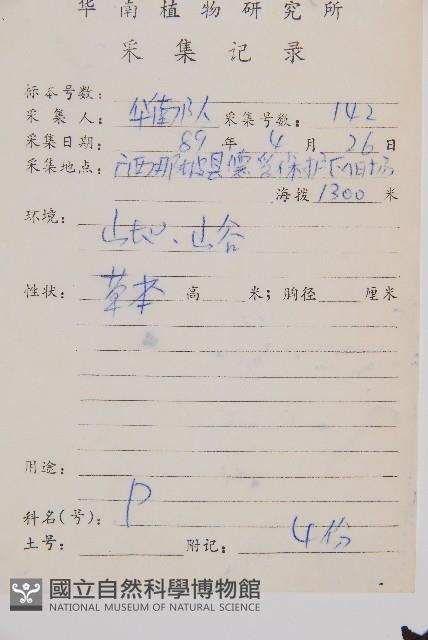 华南植物研究所
采集记录
标本号数：
采集人：华南队 采集号数：142
采集日期：89年4月26日
采集地点：广西那坡县 保护
海拨1300米
环境：山地、山谷
性状：草本 高 米；胸径 厘米
用途：
科名(号)：P
土号： 附记：4份
國立自然科學博物館
NATIONAL MUSEUM OF NATURAL SCIENCE